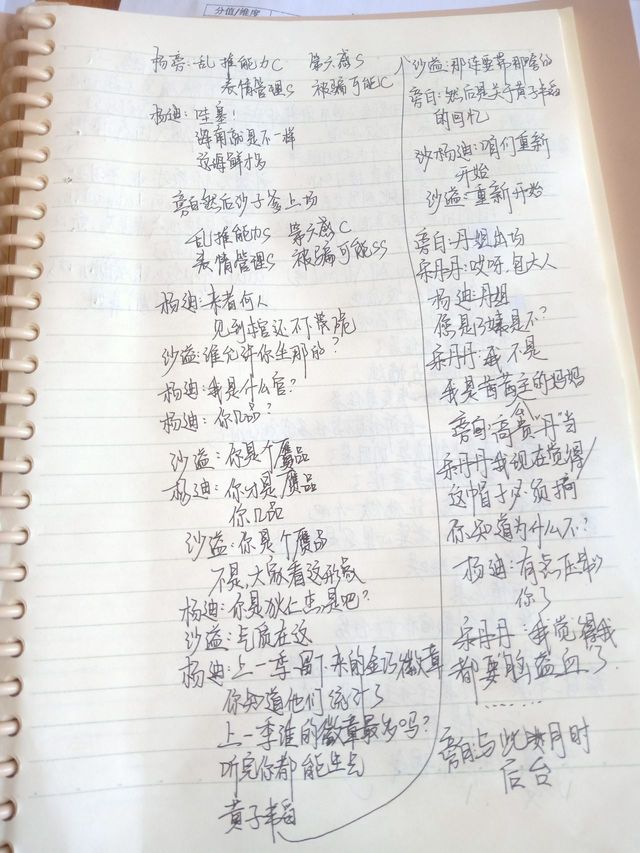 分值/维度
杨旁:乱推能力C 第六感S
表情管理S 被骗可能C
杨迪:哇塞!
海南就是不一样
这海鲜才多
旁白然后沙子益上场
乱推能力S 第六感C
表情管理S 被骗可能SS
杨迪:来者何人
见到棺还不下跪
沙溢:谁允许你坐那的?
杨迪:我是什么官?
杨迪:你几品?
沙溢:你是个赝品
杨迪:你才是赝品
你几品
沙溢:你是个赝品
不是,大家看这形象
杨迪:你是狄仁杰,是吧?
沙溢:气质在这
杨迪:上一季留下来的金记徽章
你知道他们统计了
上一季谁的徽章最多吗?
听完你都能生气
黄子韬
沙溢:那连要靠那啥的
旁白:然后是关于黄子韬
的回忆
沙杨迪:咱们重新
开始
沙溢:重新开始
旁白:丹姐出场
宋丹丹:哎呀,包大人
杨迪:丹姐
您是容嬷是不?
宋丹丹:我不是
我是茜茜公主的妈妈
旁白:高贵"丹"当
宋丹丹我现在觉得
这帽子必须摘
你知道为什么不?
杨迪:有点压到
你了
宋丹丹:我觉得我
都要脑溢血了
......
旁白:与此同时
后台